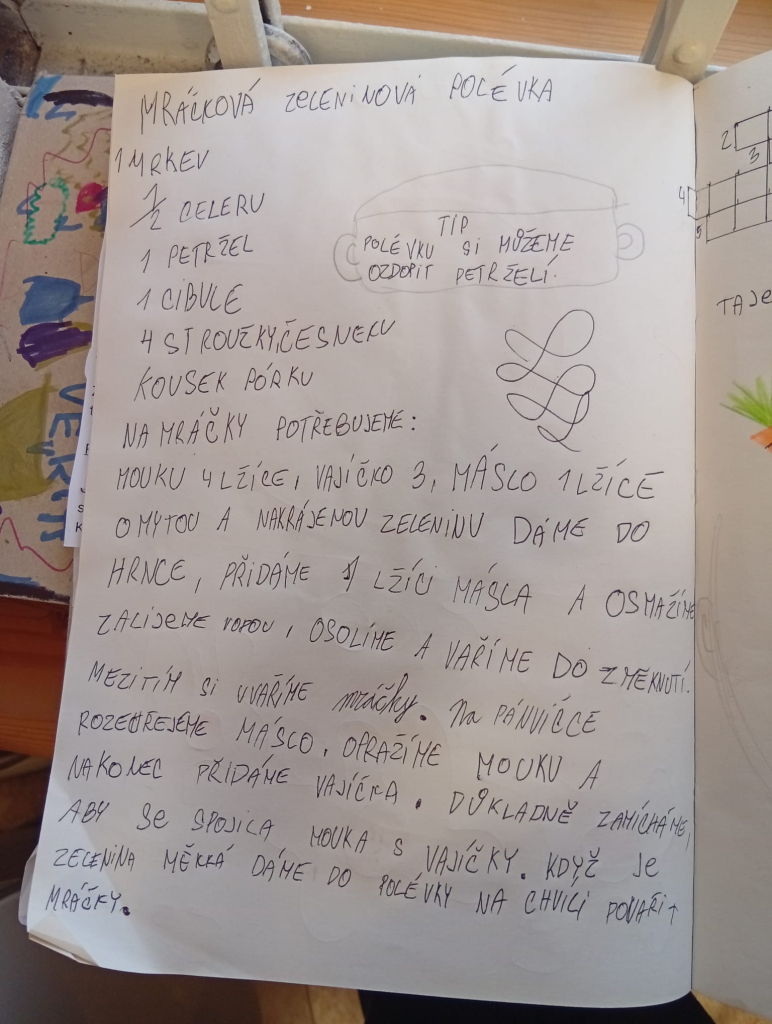 MRÁČKOVÁ ZELENINOVÁ POLÉVKA
1 MRKEV
1/2 CELERU
1 PETRŽEL
1 CIBULE
4 STROUŽKY ČESNEKU
KOUSEK PÓRKU
TIP
POLÉVKU SI MŮŽEME
OZDOPIT PETRŽELÍ.
NA MRÁČKY POTŘEBUJEME:
MOUKU 4 LŽÍCE, VAJÍČKO 3, MÁSLO 1 LŽÍCE
OMYTOU A NAKRÁJENOU ZELENINU DÁME DO
HRNCE, PŘIDÁME 1 LŽÍCI MÁSLA A OSMAŽÍME
ZALIJEME VODOU, OSOLÍME A VAŘÍME DO ZMĚKNUTÍ.
MEZITÍM SI UVAŘÍME mráčky. Na PÁNVIČCE
ROZEHŘEJEME MÁSLO, OPRAŽÍME MOUKU A
NAKONEC PŘIDÁME VAJÍČKA. DŮKLADNĚ ZAMÍCHÁME,
ABY SE SPOJILA MOUKA S VAJÍČKY. KDYŽ JE
ZELENINA MĚKKÁ DÁME DO POLÉVKY NA CHVÍLI POVAŘIT
MRÁČKY.
2
3
4
5
TAJE